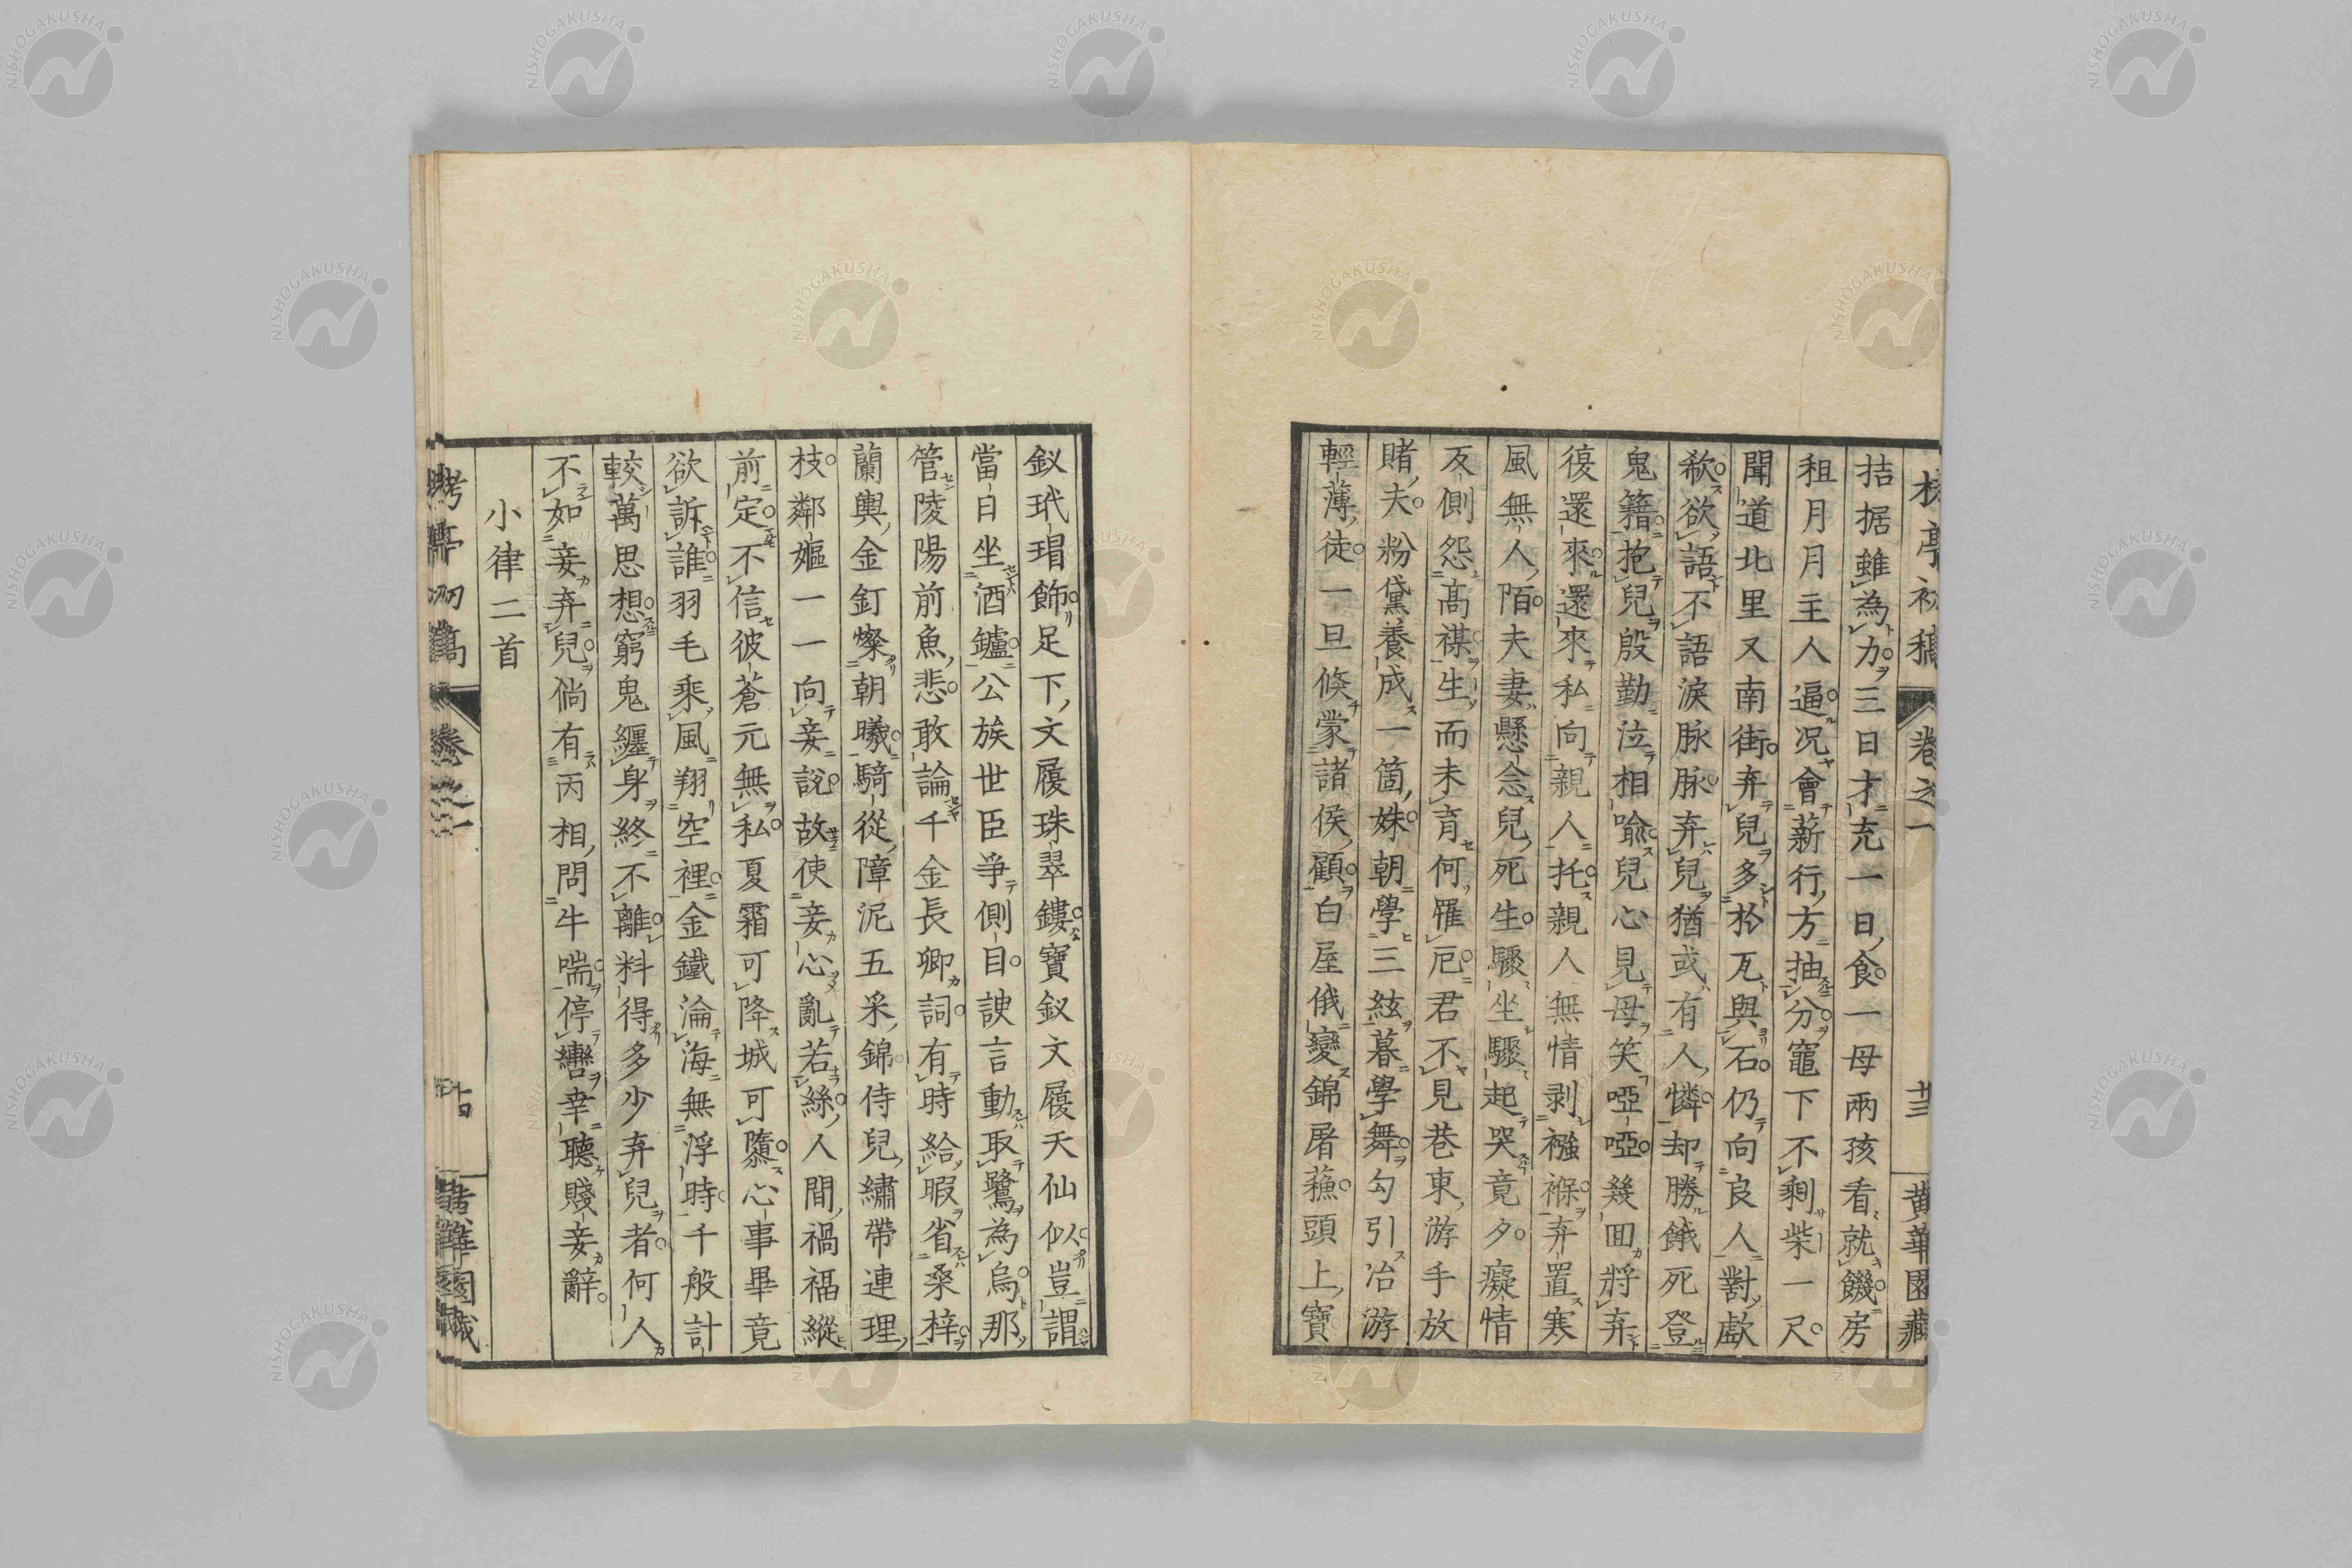 亭初稿 卷之一 十三 黄華園藏
拮据雖為力三日才充一日食一母兩孩看就饑房
租月月主人逼况會薪行方抽分竈下不剩柴一尺
聞道北里又南街弃兒多於瓦與石仍向良人對歔
欷欲語不語淚脉脉弃兒猶或有人憐却勝餓死登
鬼籍抱兒殷勤泣相喻兒心見母笑啞啞幾回將弃
復還來還來私向親人托親人無情剥襁褓弃置寒
風無人陌夫妻懸念兒死生驟坐驟起哭竟夕癡情
反側怨高禖生而未育何罹厄君不見巷東游手放
賭夫粉黛養成一箇姝朝學三絃暮學舞勾引冶游
輕薄徒一旦倐蒙諸侯顧白屋俄變錦屠蘓頭上寶
釵玳瑁飾足下文履珠翠鏤寶釵文履天仙似豈謂
當日坐酒鑪公族世臣爭側目諛言動取鷺為烏那
管陵陽前魚悲敢論千金長卿詞有時給暇省桑梓
蘭輿金釘燦朝曦騎從障泥五采錦侍兒繡帶連理
枝鄰嫗一一向妾說故使妾心亂若絲人間禍福縱
前定不信彼蒼元無私夏霜可降城可隳心事畢竟
欲訴誰羽毛乘風翔空裡金鐵淪海無浮時千般計
較萬思想窮鬼纏身終不離料得多少弃兒者何人
不如妾弃兒倘有丙相問牛喘停轡幸聽賤妾辭
小律二首
亭初稿 卷之一 黄華園藏